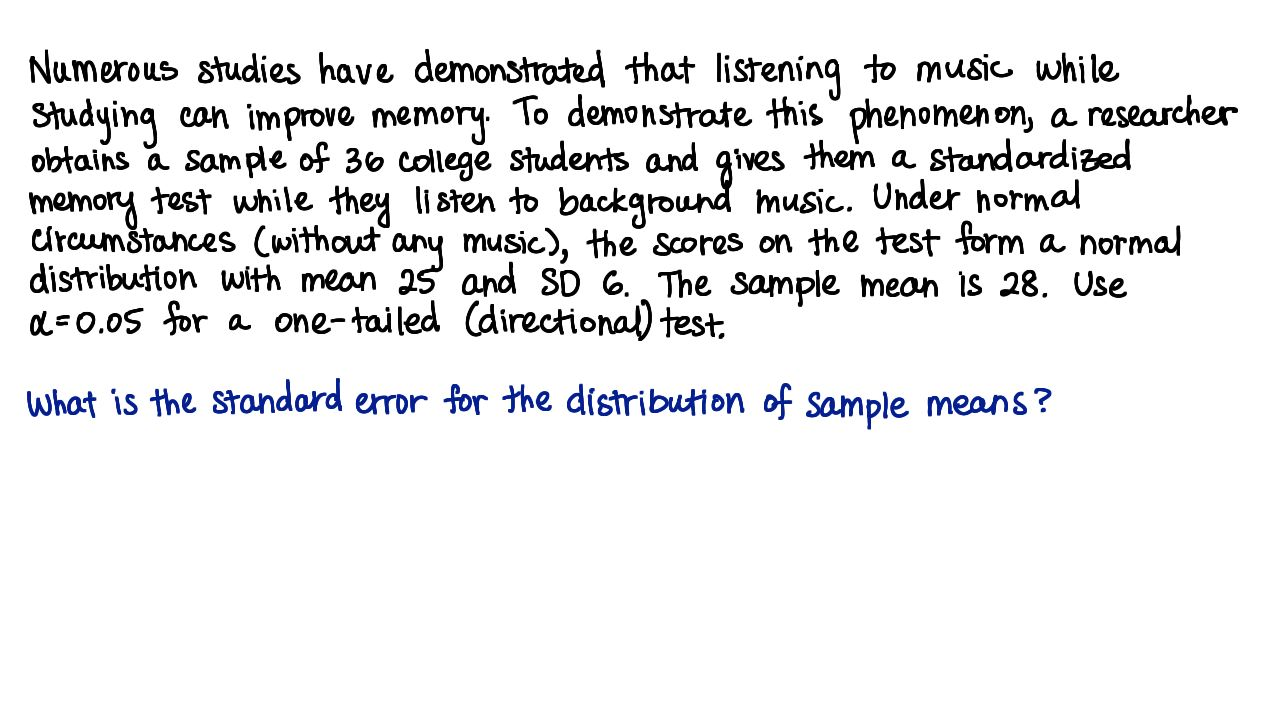 Numerous studies have demonstrated that listening to music while
studying can improve memory. To demonstrate this phenomenon, a researcher
obtains a sample of 36 college students and gives them a standardized
memory test while they listen to background music. Under normal
circumstances (without any music), the scores on the test form a normal
distribution with mean 25 and SD 6. The sample mean is 28. Use
α=0.05 for a one-tailed (directional) test.
What is the standard error for the distribution of sample means?